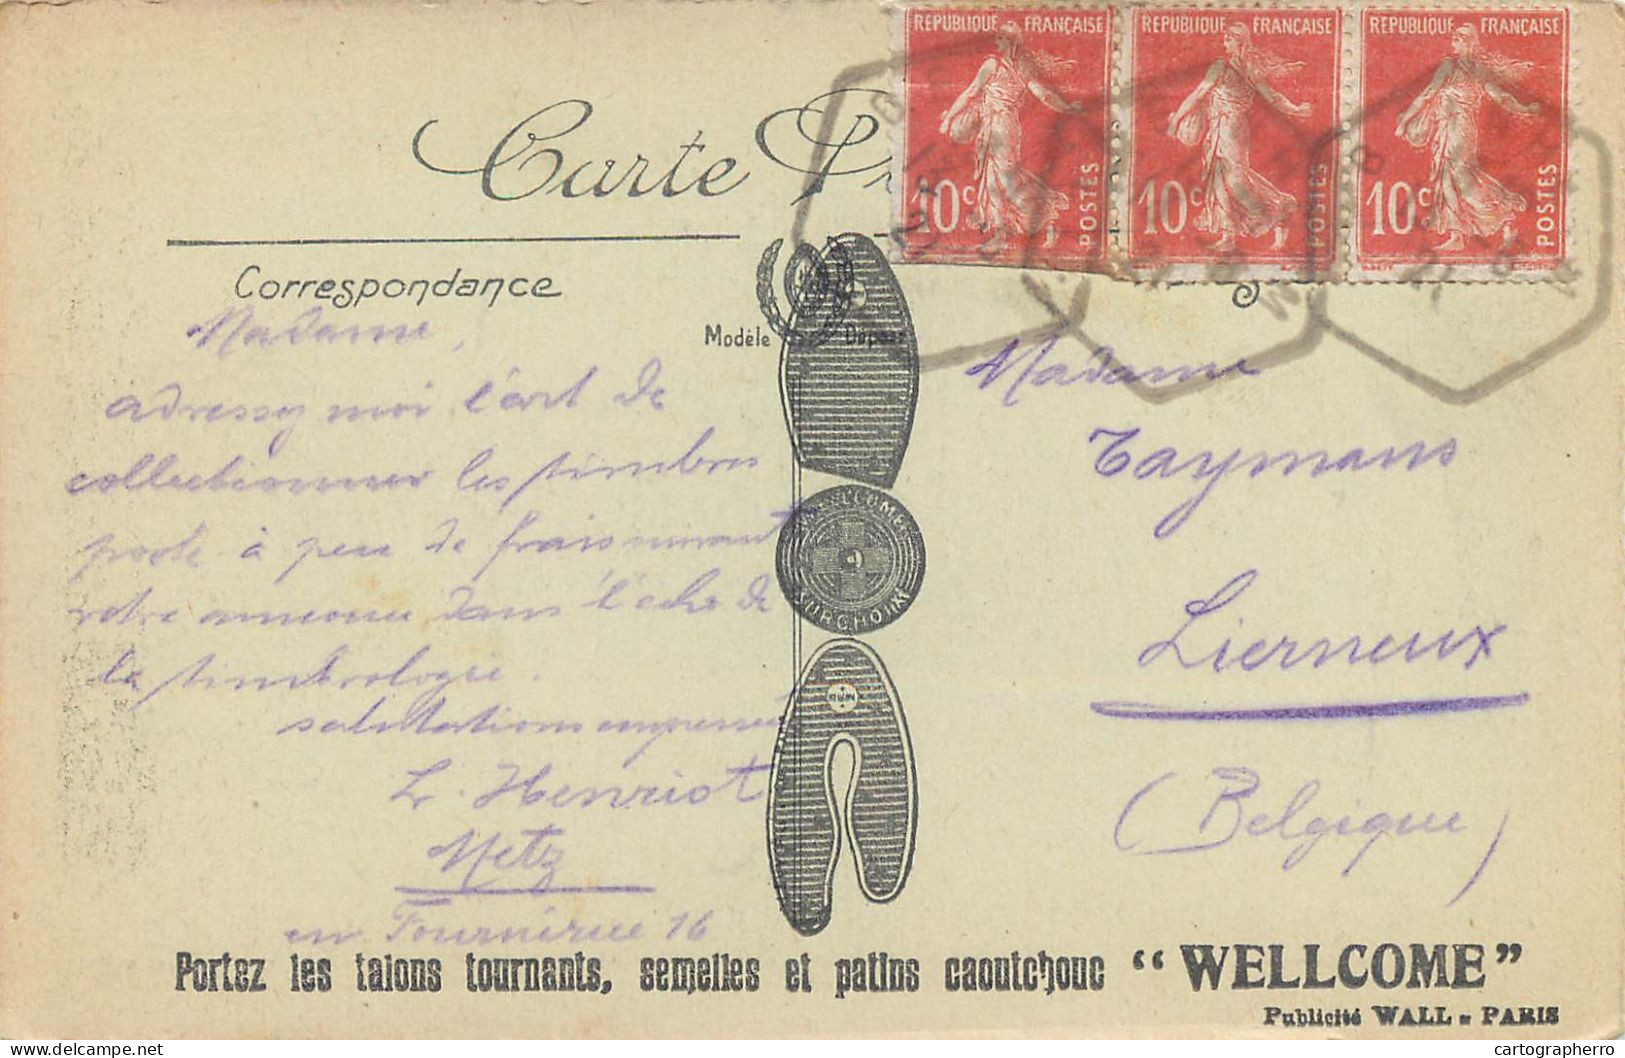 REPUBLIQUE FRANÇAISE
10c POSTES
REPUBLIQUE FRANÇAISE
10c POSTES
REPUBLIQUE FRANÇAISE
10c POSTES
Carte
Correspondance
Modèle Déposé
Madame,
adressez moi l'art de
collectionner les timbres
poste à peu de frais suivant
votre annonce dans l'écho de
la timbrologie.
salutations empressées
L. Henriot
Metz
en Fournirue 16
Madame
Taymans
Lierneux
(Belgique)
WELLCOME
TOURNANT
Portez les talons tournants, semelles et patins caoutchouc "WELLCOME"
Publicité WALL - PARIS
delcampe.net
cartographerro